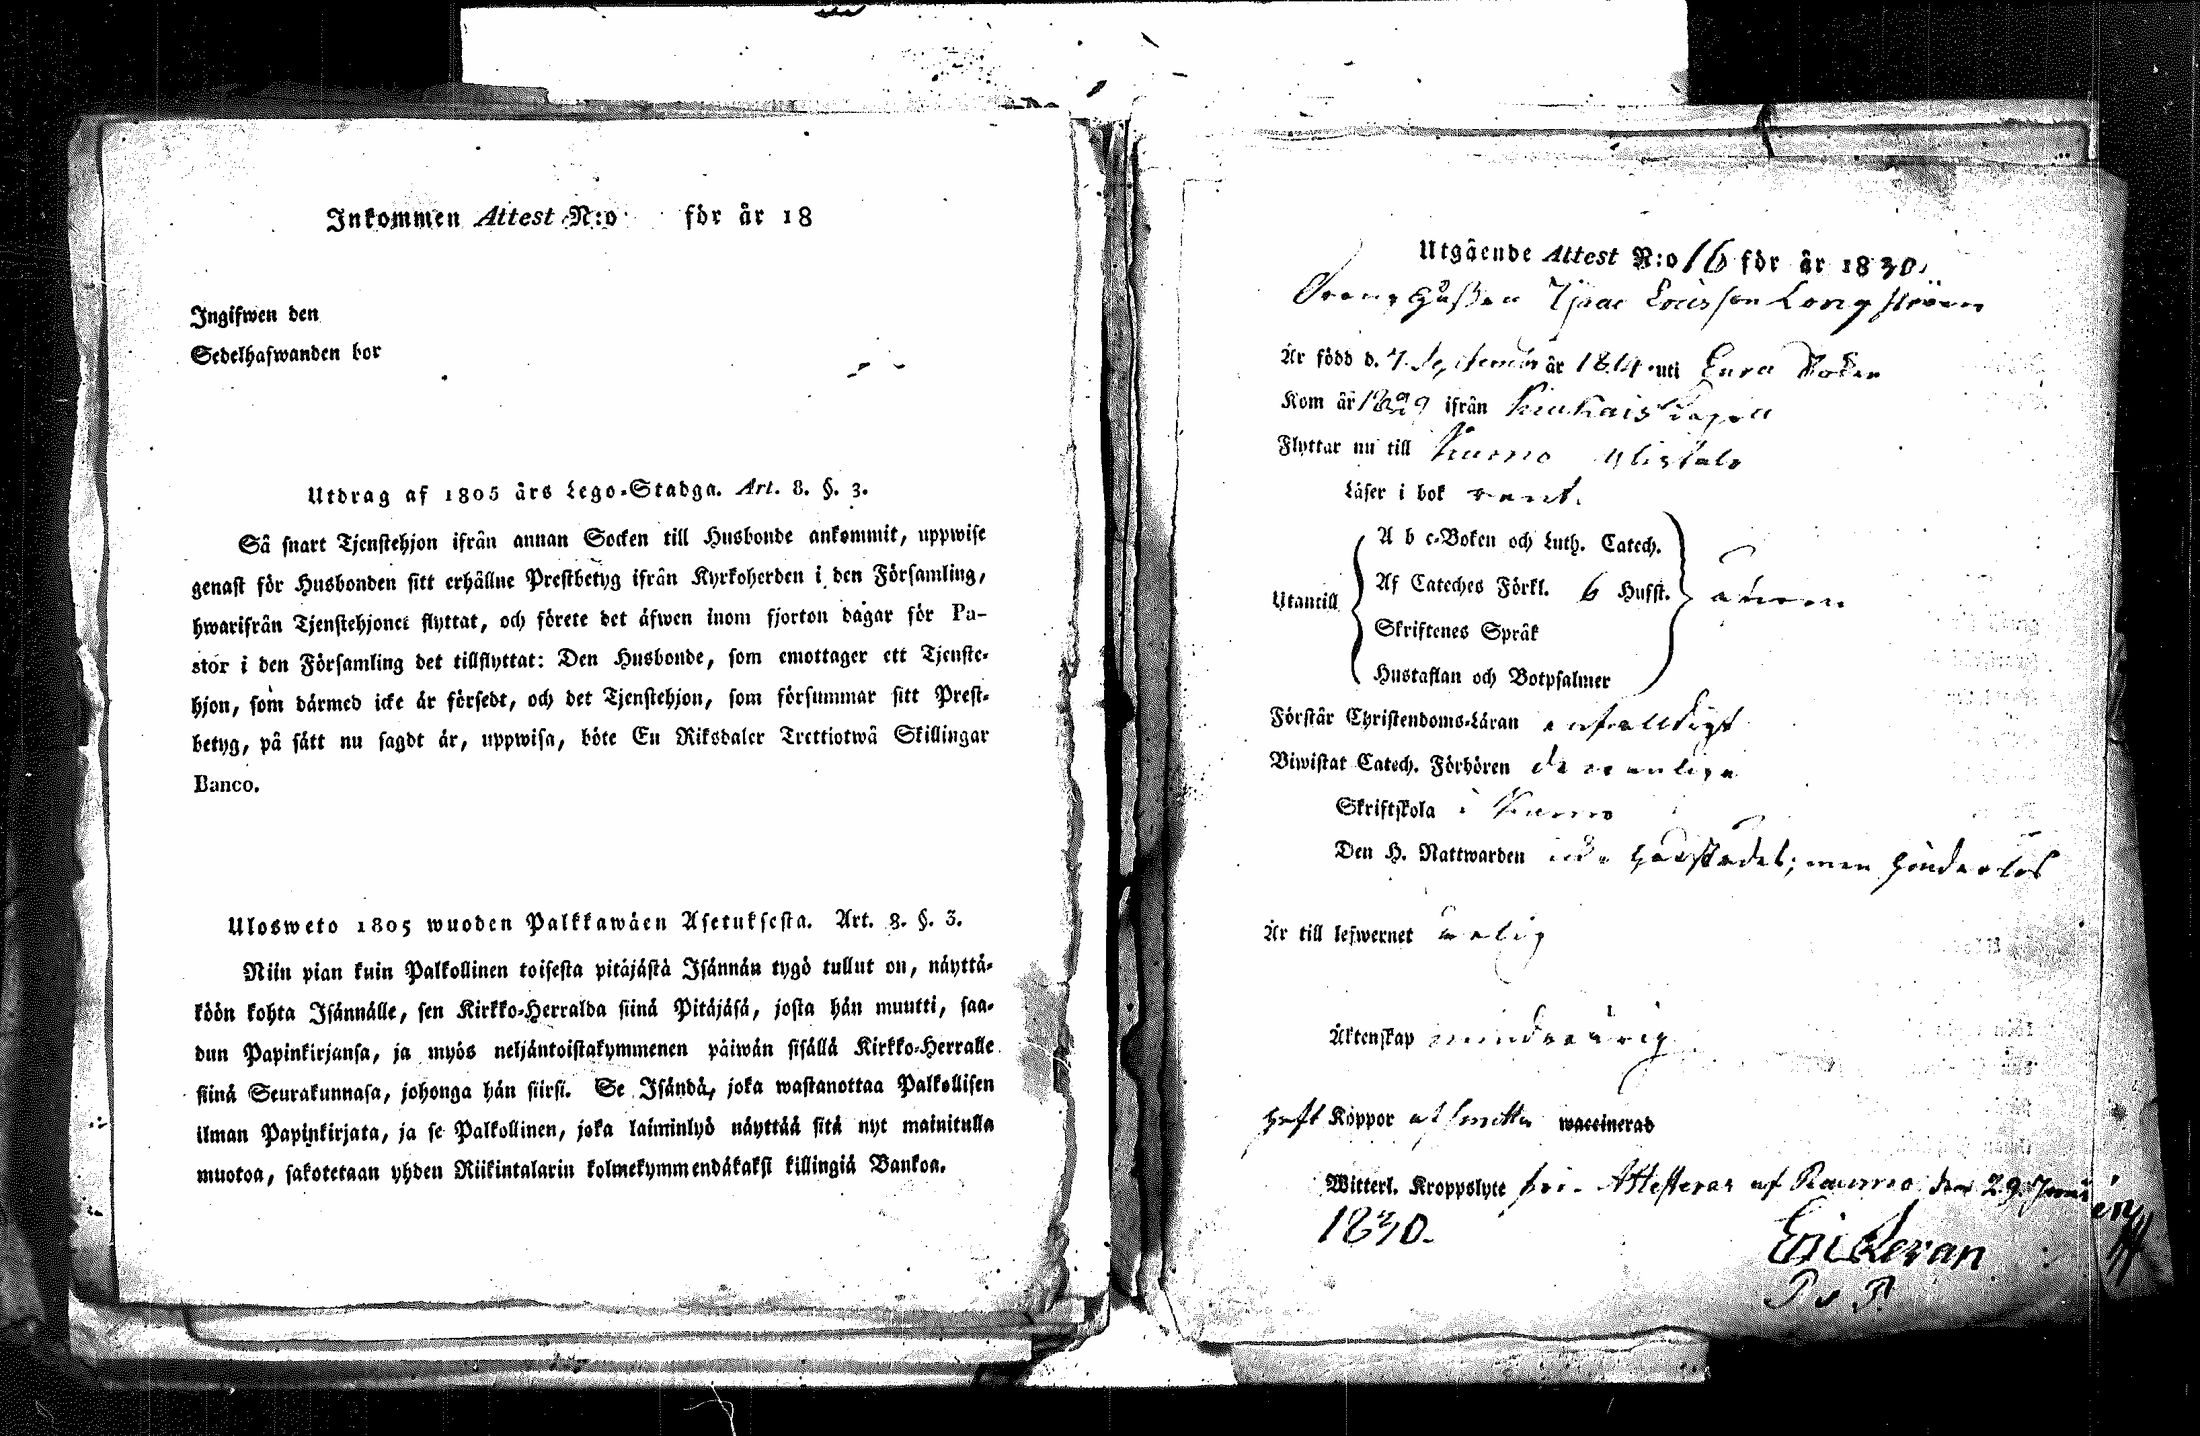 Inkommen Attest N:o för år 18
Ingifwen den
Sedelhafwanden bor
Utdrag af 1805 års Lego-Stadga. Art. 8. §. 3.
Så snart Tjenstehjon ifrån annan Socken till Husbonde ankommit, uppwise
genast för Husbonden sitt erhållne Prestbetyg ifrån Kyrkoherden i den Församling,
hwarifrån Tjenstehjonet flyttat, och förete det äfwen inom fjorton dagar för Pa-
stor i den Församling det tillflyttat: Den Husbonde, som emottager ett Tjenste-
hjon, som därmed icke är försedt, och det Tjenstehjon, som försummar sitt Prest-
betyg, på sätt nu sagdt är, uppwisa, böte En Riksdaler Trettiotwå Skillingar
Banco.
Ulosweto 1805 wuoden Palkkawäen Asetuksesta. Art. 8. §. 3.
Niin pian kuin Palkollinen toisesta pitäjästä Isännän tygö tullut on, näyttä-
köön kohta Isännälle, sen Kirkko-Herralda siinä Pitäjäsä, josta hän muutti, saa-
dun Papinkirjansa, ja myös neljäntoistakymmenen päiwän sisällä Kirkko-Herralle
siinä Seurakunnasa, johonga hän siirsi. Se Isändä, joka wastanottaa Palkollisen
ilman Papinkirjata, ja se Palkollinen, joka laiminlyö näyttää sitä nyt mainitulla
muotoa, sakotetaan yhden Riikintalarin kolmekymmendäkaksi killingiä Bankoa.
Utgående Attest N:o 16 för år 1830.
Isaac Ericsson Longström
Är född d. 7 September år 1814 uti Eura Soken
Kom år 1829 ifrån Kiukais Capell
Flyttar nu till Kumo
Läser i bok rent.
A b c-Boken och Luth. Catech.
Utantill Af Cateches Förkl. 6 Hufst.
Skriftenes Språk
Hustaflan och Botpsalmer
Förstår Christendoms-Läran enfalldigt
Biwistat Catech. Förhören
Skriftskola i Kumo
Den H. Nattwarden icke men
Är till lefwernet
Äktenskap minderårig
haft Koppor waccinerad
Witterl. Kroppslyte fri. Attesteras af Raumo den 29 Junii
1830.
Eric Levan
P v P.